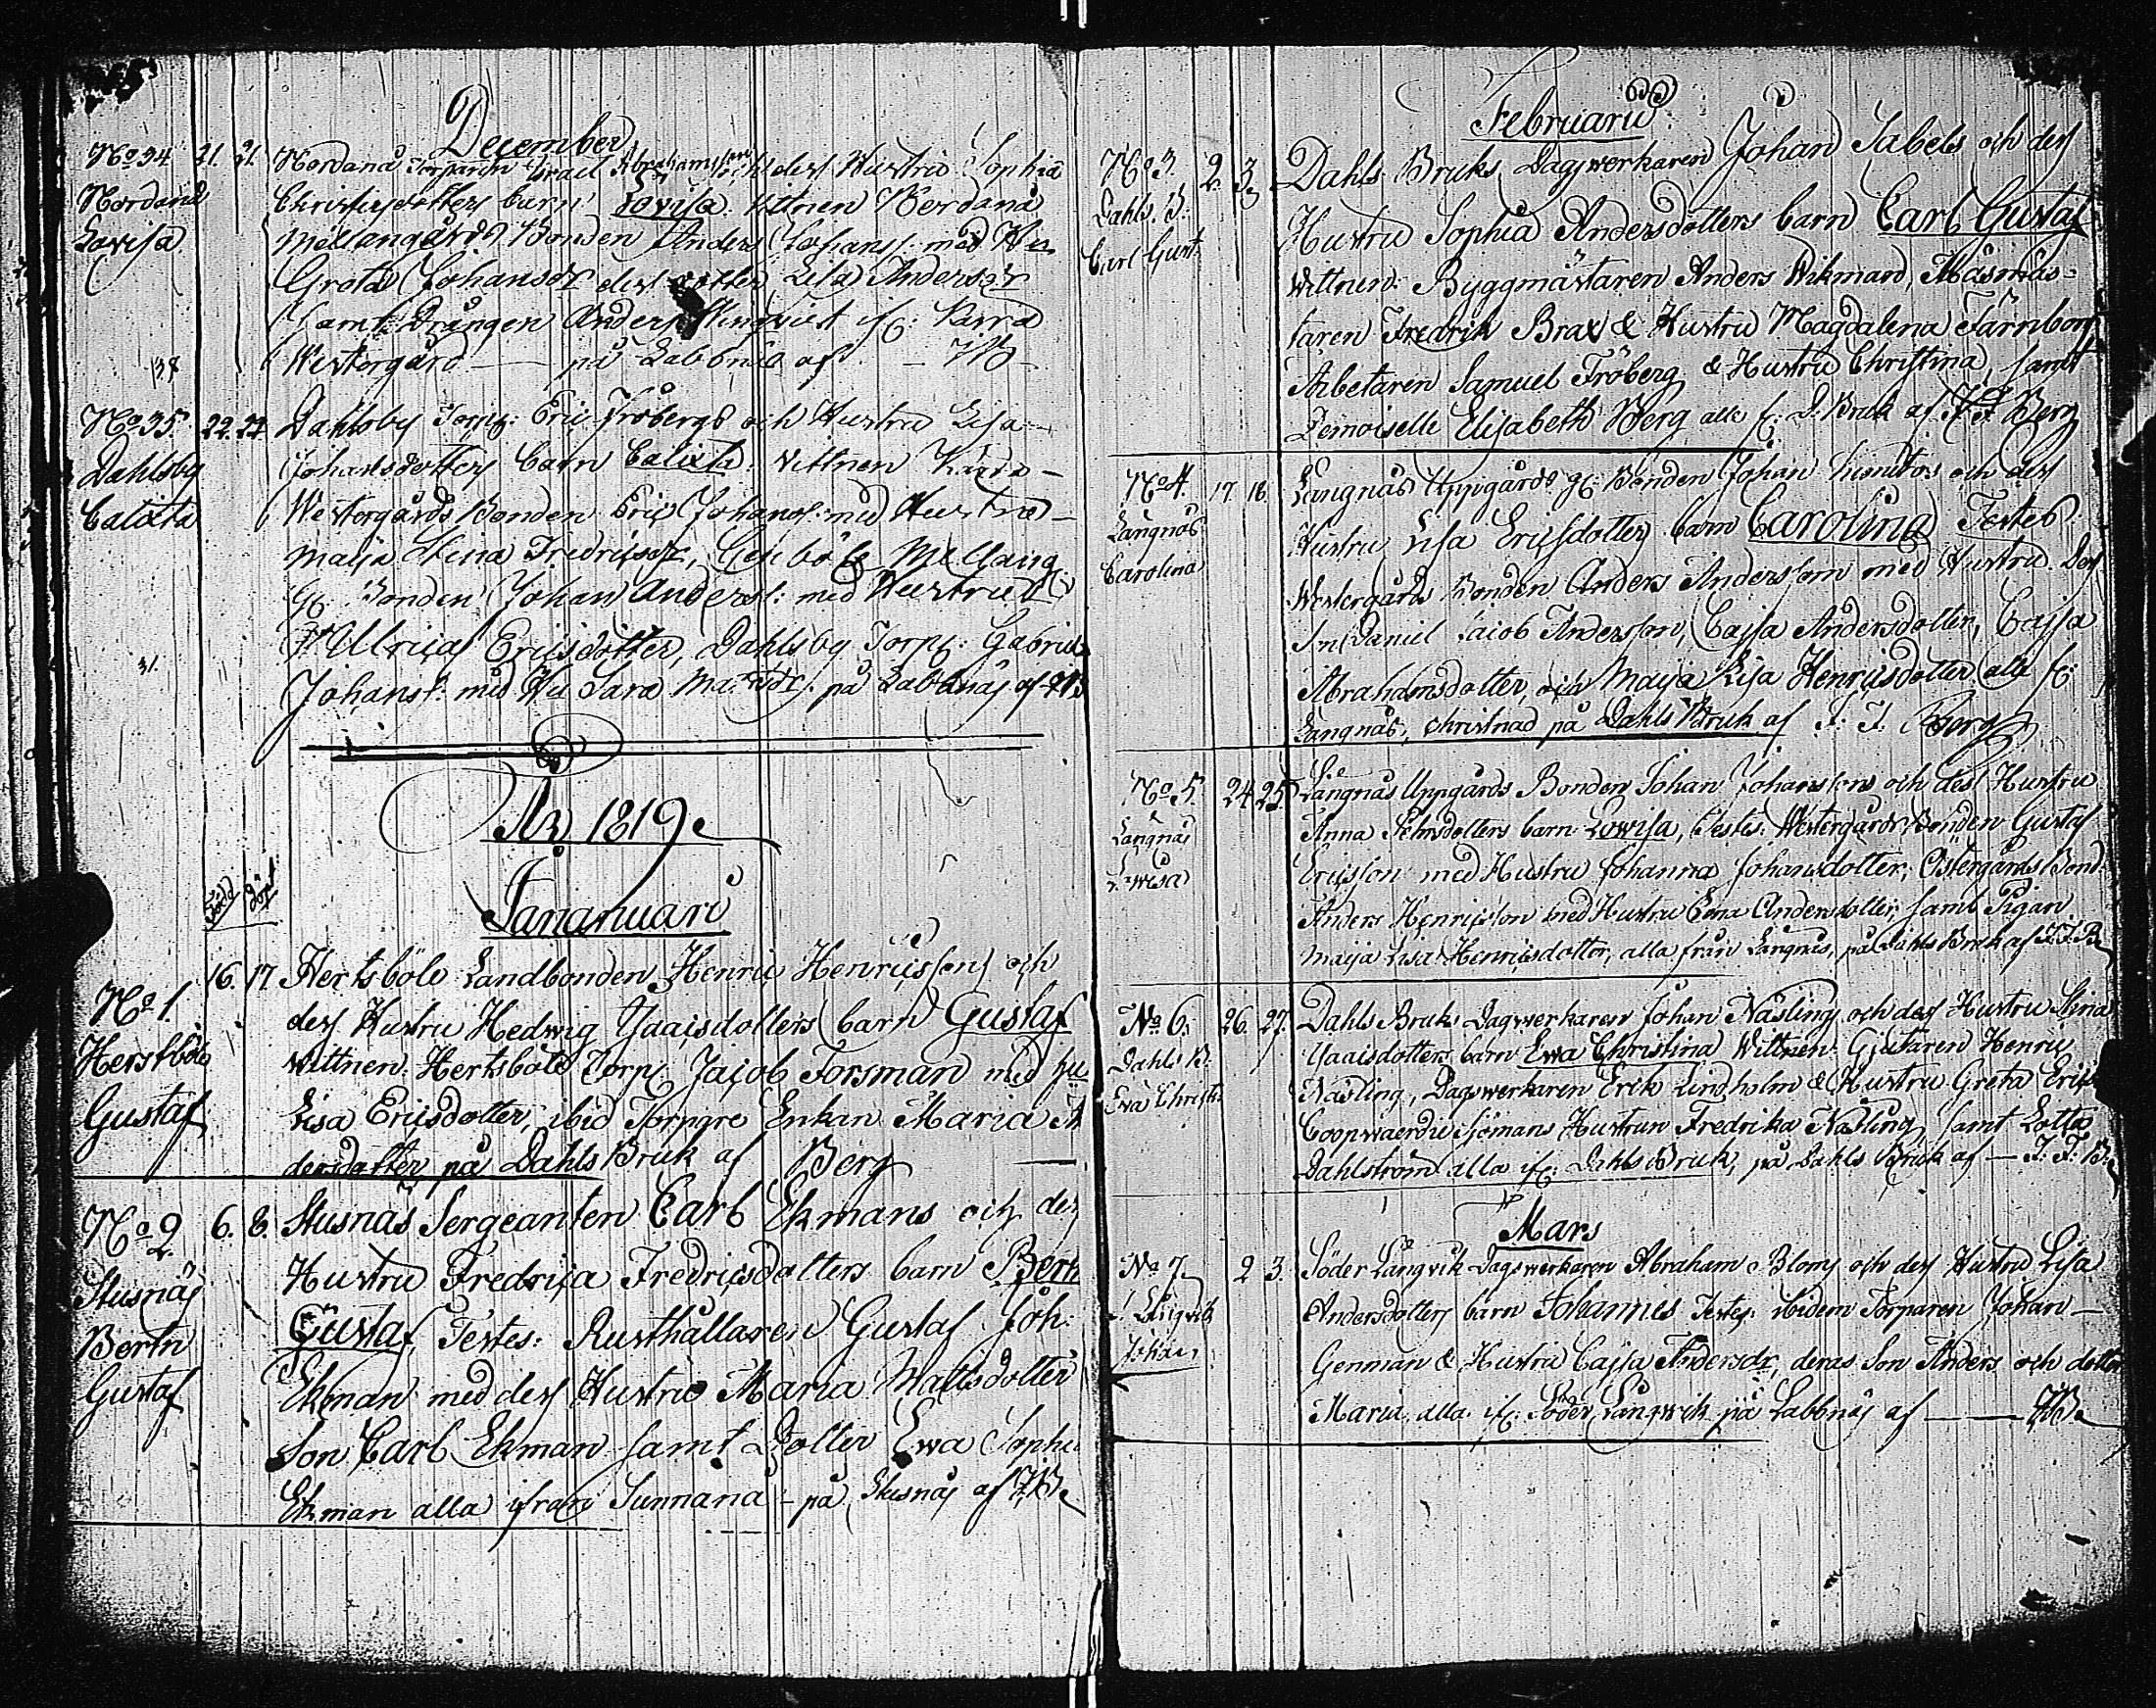 December
No 34 21. 21. Nordanå Torparen Israel Abrahamsson och dess Hustru Sophia
Nordanå Christersdotters barn Lovisa. Vittnen Nordanå
Lovisa Mellangårds Bonden Anders Johanss: med Hu
Greta Johansdr dess dotter Lisa Andersdr
samt Drängen Anders if: Kärra
Westergård — på Labbnäs af — JB
38
No 35. 22. 22. Dahlsby Torp: Eric Fröbergs och Hustru Lisa
Dahlsby Johansdotters barn Calixta. Vittnen Kärra
Calixta Westergårds Bonden Eric Johanss: med Hustru
Maija Stina Fredricsdr, Mellang:
Bonden Johan Anderss: med Hustru
Ulrica Ericsdotter, Dahlsby Torp: Gabriel
31. Johanss: med Hu Sara på Labbnäs af JB
År 1819
Född Döpt
Jananuari
16. 17 Hertsböle Landbonden Henric Henricssons och
No 1. dess Hustru Hedwig Isaaisdotters barn Gustaf
Herstböle Wittnen: Hertsböle Torp: Jacob Forsman med hu
Gustaf Lisa Ericsdotter, ibid Torpare Enkan Maria An
dersdotter på Dahls Bruk af Berg
No 2. 6. 8. Stusnäs Sergeanten Carl Ekmans och dess
Stusnäs Hustru Fredrica Fredricsdotters barn Bernt
Berntn Gustaf, Testes: Rusthållaren Gustaf Joh:
Gustaf Ekman med dess Hustru Maria Mattsdotter
Son Carl Ekman samt Dotter Ewa Sophia
Ekman alla ifrån Sunnanå — på Stusnäs af JB.
Februarii
No 3. 2. 3. Dahls Bruks Dagswerkaren Johan Sabels och dess
Dahls. B. Hustru Sophia Andersdotters barn Carl Gustaf
Carl Gust. Wittnen: Byggmästaren Anders Wikman, Masmäs-
taren Fredrik Brax & Hustru Magdalena Färnborg
Arbetaren Samuel Fröberg & Hustru Christina, samt
Demoiselle Elisabeth Berg alla f: D. Bruk af J. F. Berg
No 4. 17. 18. Långnäs Uppgårds Bonden Johan och dess
Långnäs Hustru Lisa Ericsdotters barn Carolina Testes
Carolina Westergårds Bonden Anders Andersson med Hustru. Dess
Son Daniel Jacob Andersson, Cajsa Andersdotter, Cajsa
Abrahamsdotter, och Maija Lisa Henricsdotter alla f:
Långnäs, christnad på Dahls Bruk af J. F. Berg
No 5. 24 25. Långnäs Uppgårds Bonden Johan Johanssons och dess Hustru
Långnäs Anna barn Lowisa, Testes: Westergårds Bonden Gustaf
Lowisa Ericsson med Hustru Johanna Johansdotter, Östergårds Bond:
Anders Henricsson med Hustru Ewa Andersdotter, samt Pigan
Maija Lisa Henricsdotter, alla från Långnäs, på Dahls Bruk af J. F. B.
No 6. 26. 27. Dahls Bruks Dagswerkaren Johan Näsling och dess Hustru Stina
Dahls B. Isaaisdotters barn Ewa Christina Wittnen: Gjutaren Henric
Eva Christi: Näsling, Dagswerkaren Erik Lindholm & Hustru Greta Erics
Coopwaerdie Sjömans Hustrun Fredrika Näsling samt Lotta
Dahlström alla if: Dahls Bruk, på Dahls Bruk af — J. F. B.
Mars
No 7. 2 3. Söder Långvik Dagswerkaren Abraham Bloms och dess Hustru Lisa
S. Långvik Andersdotters barn Johannes Testes: ibidem Torparen Johan
Johan Genman & Hustru Cajsa Andersdr, deras Son Anders och dotter
Maria, alla if: Söder Långwik på Labbnäs af — JB.